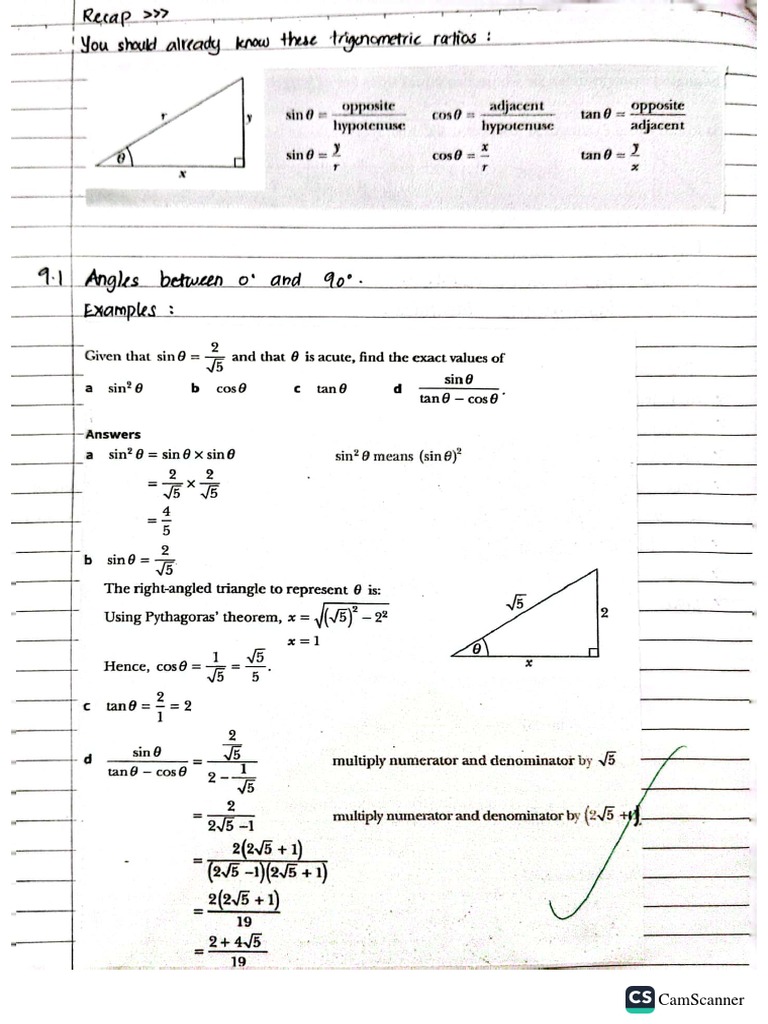 Recap >>>
You should already know these trigonometric ratios :
r y θ x
sin θ = opposite/hypotenuse cos θ = adjacent/hypotenuse tan θ = opposite/adjacent
sin θ = y/r cos θ = x/r tan θ = y/x
9.1 Angles between 0° and 90°.
Examples :
Given that sin θ = 2/√5 and that θ is acute, find the exact values of
a sin² θ b cos θ c tan θ d sin θ/(tan θ − cos θ).
Answers
a sin² θ = sin θ × sin θ sin² θ means (sin θ)²
= 2/√5 × 2/√5
= 4/5
b sin θ = 2/√5
The right-angled triangle to represent θ is:
Using Pythagoras' theorem, x = √((√5)² − 2²)
x = 1
√5 2 θ x
Hence, cos θ = 1/√5 = √5/5.
c tan θ = 2/1 = 2
d sin θ/(tan θ − cos θ) = (2/√5)/(2 − 1/√5) multiply numerator and denominator by √5
= 2/(2√5 − 1) multiply numerator and denominator by (2√5 + 1).
= 2(2√5 + 1)/((2√5 − 1)(2√5 + 1))
= 2(2√5 + 1)/19
= (2 + 4√5)/19
CS CamScanner